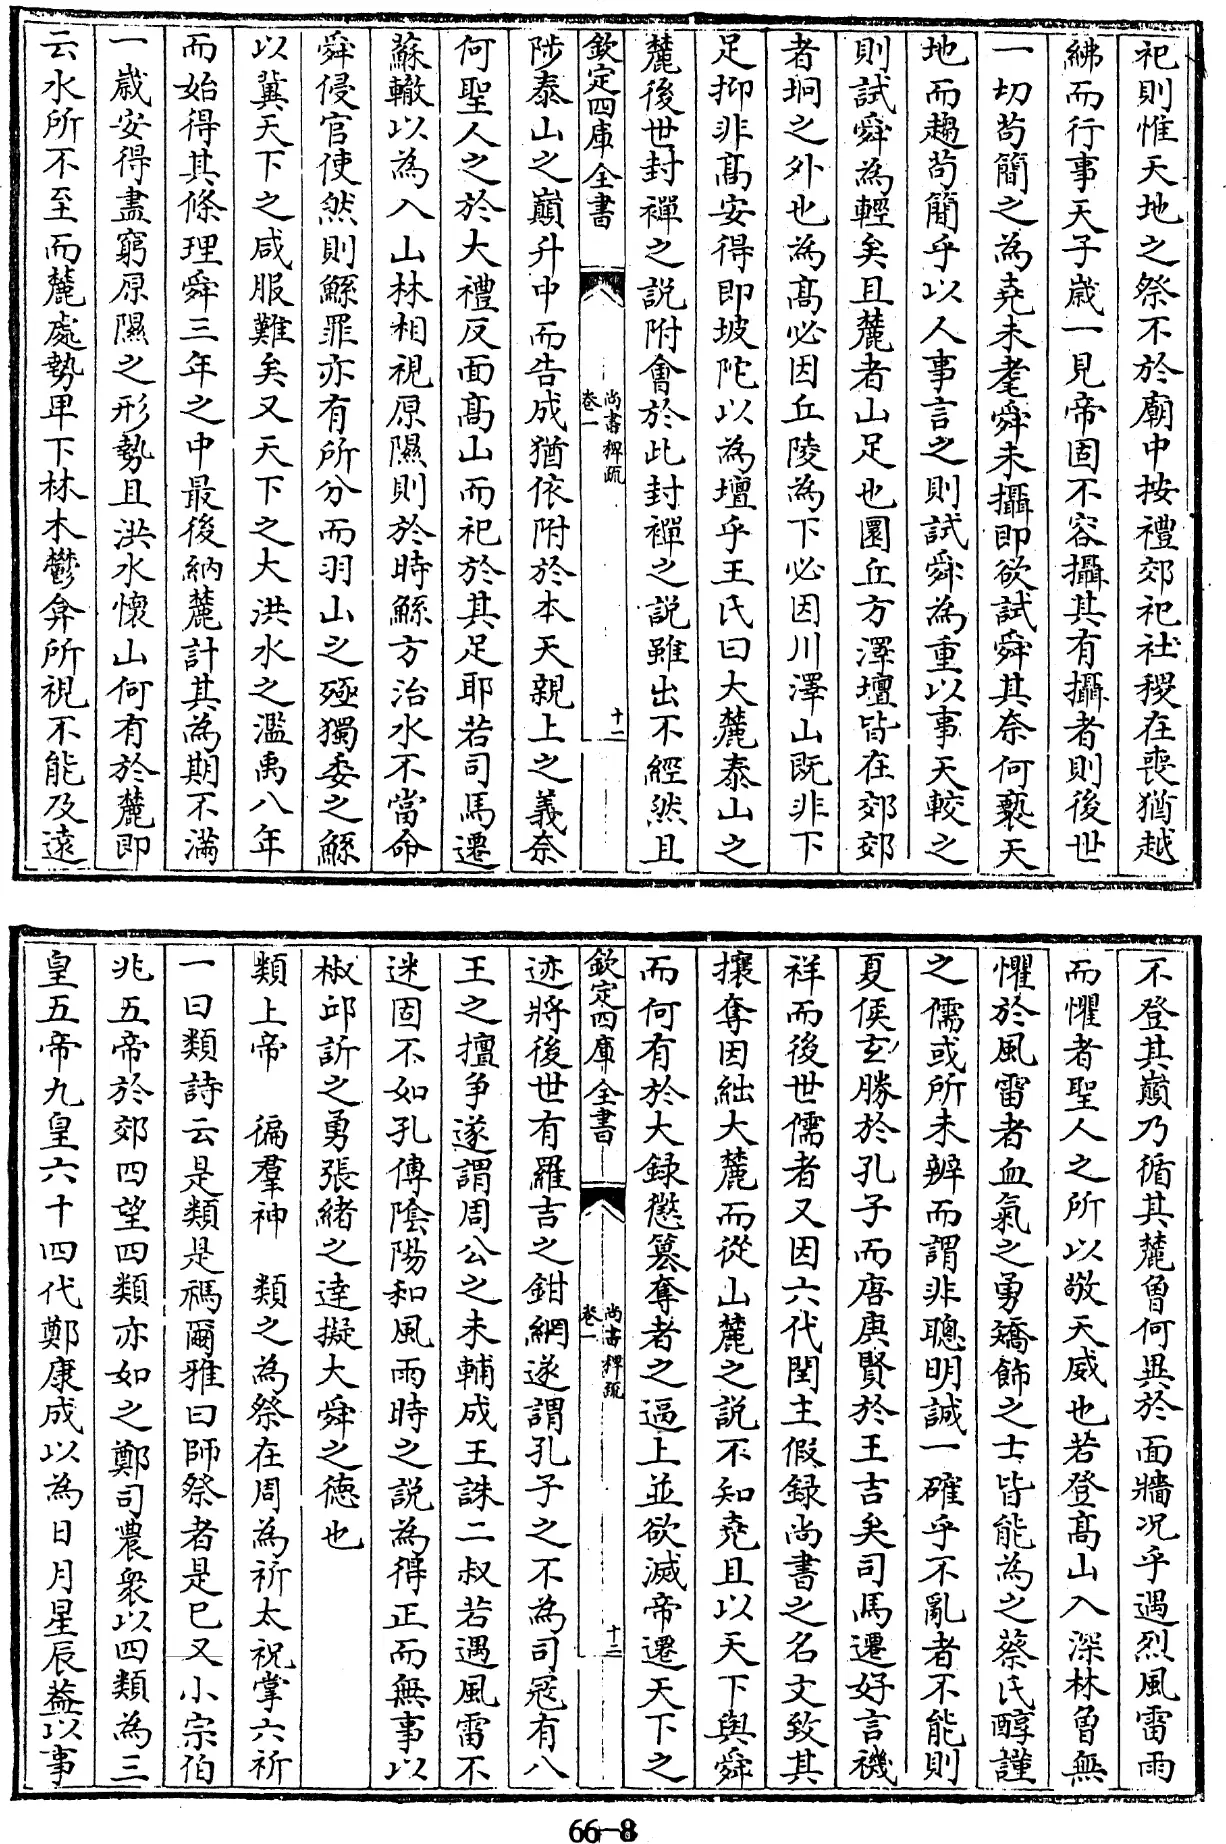 祀則惟天地之祭不於廟中按禮郊祀社稷在喪猶越
紼而行事天子歲一見帝固不容攝其有攝者則後世
一切苟簡之為堯未耄舜未攝即欲試舜其奈何褻天
地而趨苟簡乎以人事言之則試舜為重以事天較之
則試舜為輕矣且麓者山足也圜丘方澤壇皆在郊郊
者坰之外也為髙必因丘陵為下必因川澤山既非下
足抑非髙安得即坡陀以為壇乎王氏曰大麓泰山之
麓後世封禪之說附會於此封禪之說雖出不經然且
欽定四庫全書
尚書稗疏
卷一
十二
陟泰山之巔升中而告成猶依附於本天親上之義奈
何聖人之於大禮反面髙山而祀於其足耶若司馬遷
蘇轍以為入山林相視原隰則於時鯀方治水不當命
舜侵官使然則鯀罪亦有所分而羽山之殛獨委之鯀
以冀天下之咸服難矣又天下之大洪水之濫禹八年
而始得其條理舜三年之中最後納麓計其為期不滿
一歲安得盡窮原隰之形勢且洪水懷山何有於麓即
云水所不至而麓處勢卑下林木鬱弇所視不能及遠
不登其巔乃循其麓曾何異於面牆况乎遇烈風雷雨
而懼者聖人之所以敬天威也若登髙山入深林曾無
懼於風雷者血氣之勇矯飾之士皆能為之蔡氏醇謹
之儒或所未辨而謂非聰明誠一確乎不亂者不能則
夏侯玄勝於孔子而唐庚賢於王吉矣司馬遷好言禨
祥而後世儒者又因六代閏主假録尚書之名文致其
攘奪因絀大麓而從山麓之說不知堯且以天下與舜
而何有於大録懲篡奪者之逼上並欲滅帝遷天下之
欽定四庫全書
尚書稗疏
卷一
十二
迹將後世有羅吉之鉗網遂謂孔子之不為司寇有八
王之擅爭遂謂周公之未輔成王誅二叔若遇風雷不
迷固不如孔傳陰陽和風雨時之說為得正而無事以
椒邱訢之勇張緒之達擬大舜之德也
類上帝　徧羣神　類之為祭在周為祈太祝掌六祈
一曰類詩云是類是禡爾雅曰師祭者是已又小宗伯
兆五帝於郊四望四類亦如之鄭司農衆以四類為三
皇五帝九皇六十四代鄭康成以為日月星辰葢以事
66-8